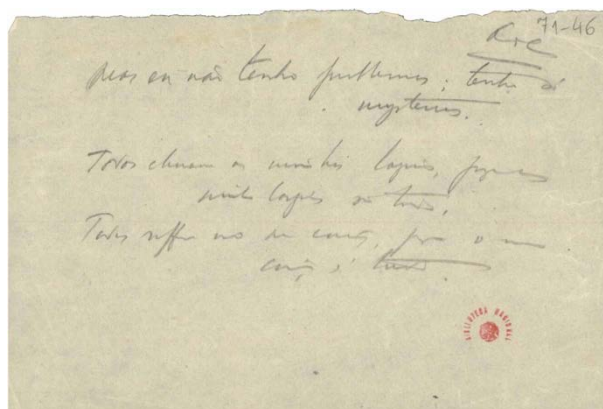 71-46
A de C
Mas eu não tenho problemas; tenho só
mysterios.
Todos choram as minhas lagrimas, porque as
minhas lagrimas são todos,
Todos soffrem no meu coração, porque o meu
coração é tudo.
BIBLIOTECA NACIONAL